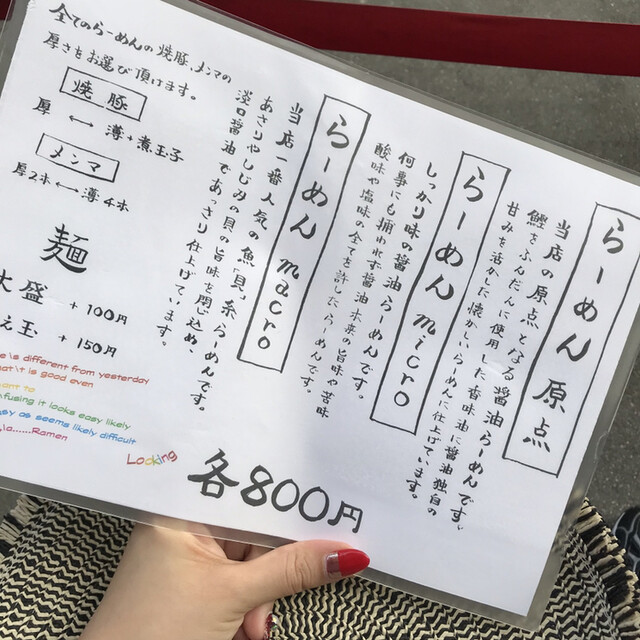 らーめん 原点
当店の原点となる醤油らーめんです。
鰹をふんだんに使用した香味油に醤油独自の
甘みを活かした懐かしいらーめんに仕上げています。
らーめん micro
しっかり味の醤油らーめんです。
何事にも捕われず醤油本来の旨味や苦味
酸味や塩味の全てを許したらーめんです。
らーめん macro
当店一番人気の魚「貝」系らーめんです。
あさりやしじみの貝の旨味を閉じ込め、
淡口醤油であっさり仕上げています。
全てのらーめんの焼豚、メンマの
厚さをお選び頂けます。
焼豚
厚 ⟷ 薄+煮玉子
メンマ
厚2本 ⟷ 薄4本
麺
大盛 +100円
え玉 +150円
is different from yesterday
is good even
to
it looks easy likely
as seems likely difficult
......Ramen
Locking
各800円